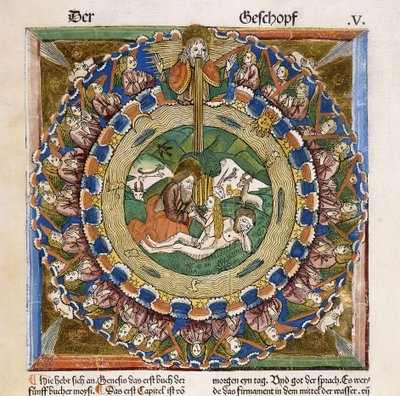 Der Geschopf .V.
Hie hebt sich an. Genesis das erst buch der
fünff bucher moysi. Das erst Capitel ist vō
morgen eyn tag. Vnd got der sprach. Es wer-
de das firmament in dem mittel der wasser. vñ